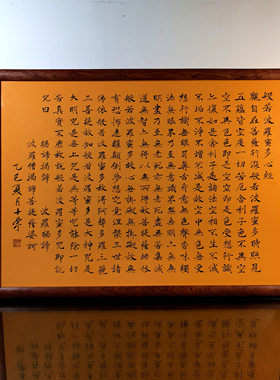 般若波羅蜜多心經
觀自在菩薩行深般若波羅蜜多時照見
五蘊皆空度一切苦厄舍利子色不異空
空不異色色即是空空即是色受想行識
亦復如是舍利子是諸法空相不生不滅
不垢不淨不增不減是故空中無色無受
想行識無眼耳鼻舌身意無色聲香味觸
法無眼界乃至無意識界無無明亦無無
明盡乃至無老死亦無老死盡無苦集滅
道無智亦無得以無所得故菩提薩埵依
般若波羅蜜多故心無罣礙無罣礙故無
有恐怖遠離顛倒夢想究竟涅槃三世諸
佛依般若波羅蜜多故得阿耨多羅三藐
三菩提故知般若波羅蜜多是大神咒是
大明咒是無上咒是無等等咒能除一切
苦真實不虛故說般若波羅蜜多咒即說
咒曰
揭諦揭諦 波羅揭諦
波羅僧揭諦菩提薩婆訶
乙巳夏月